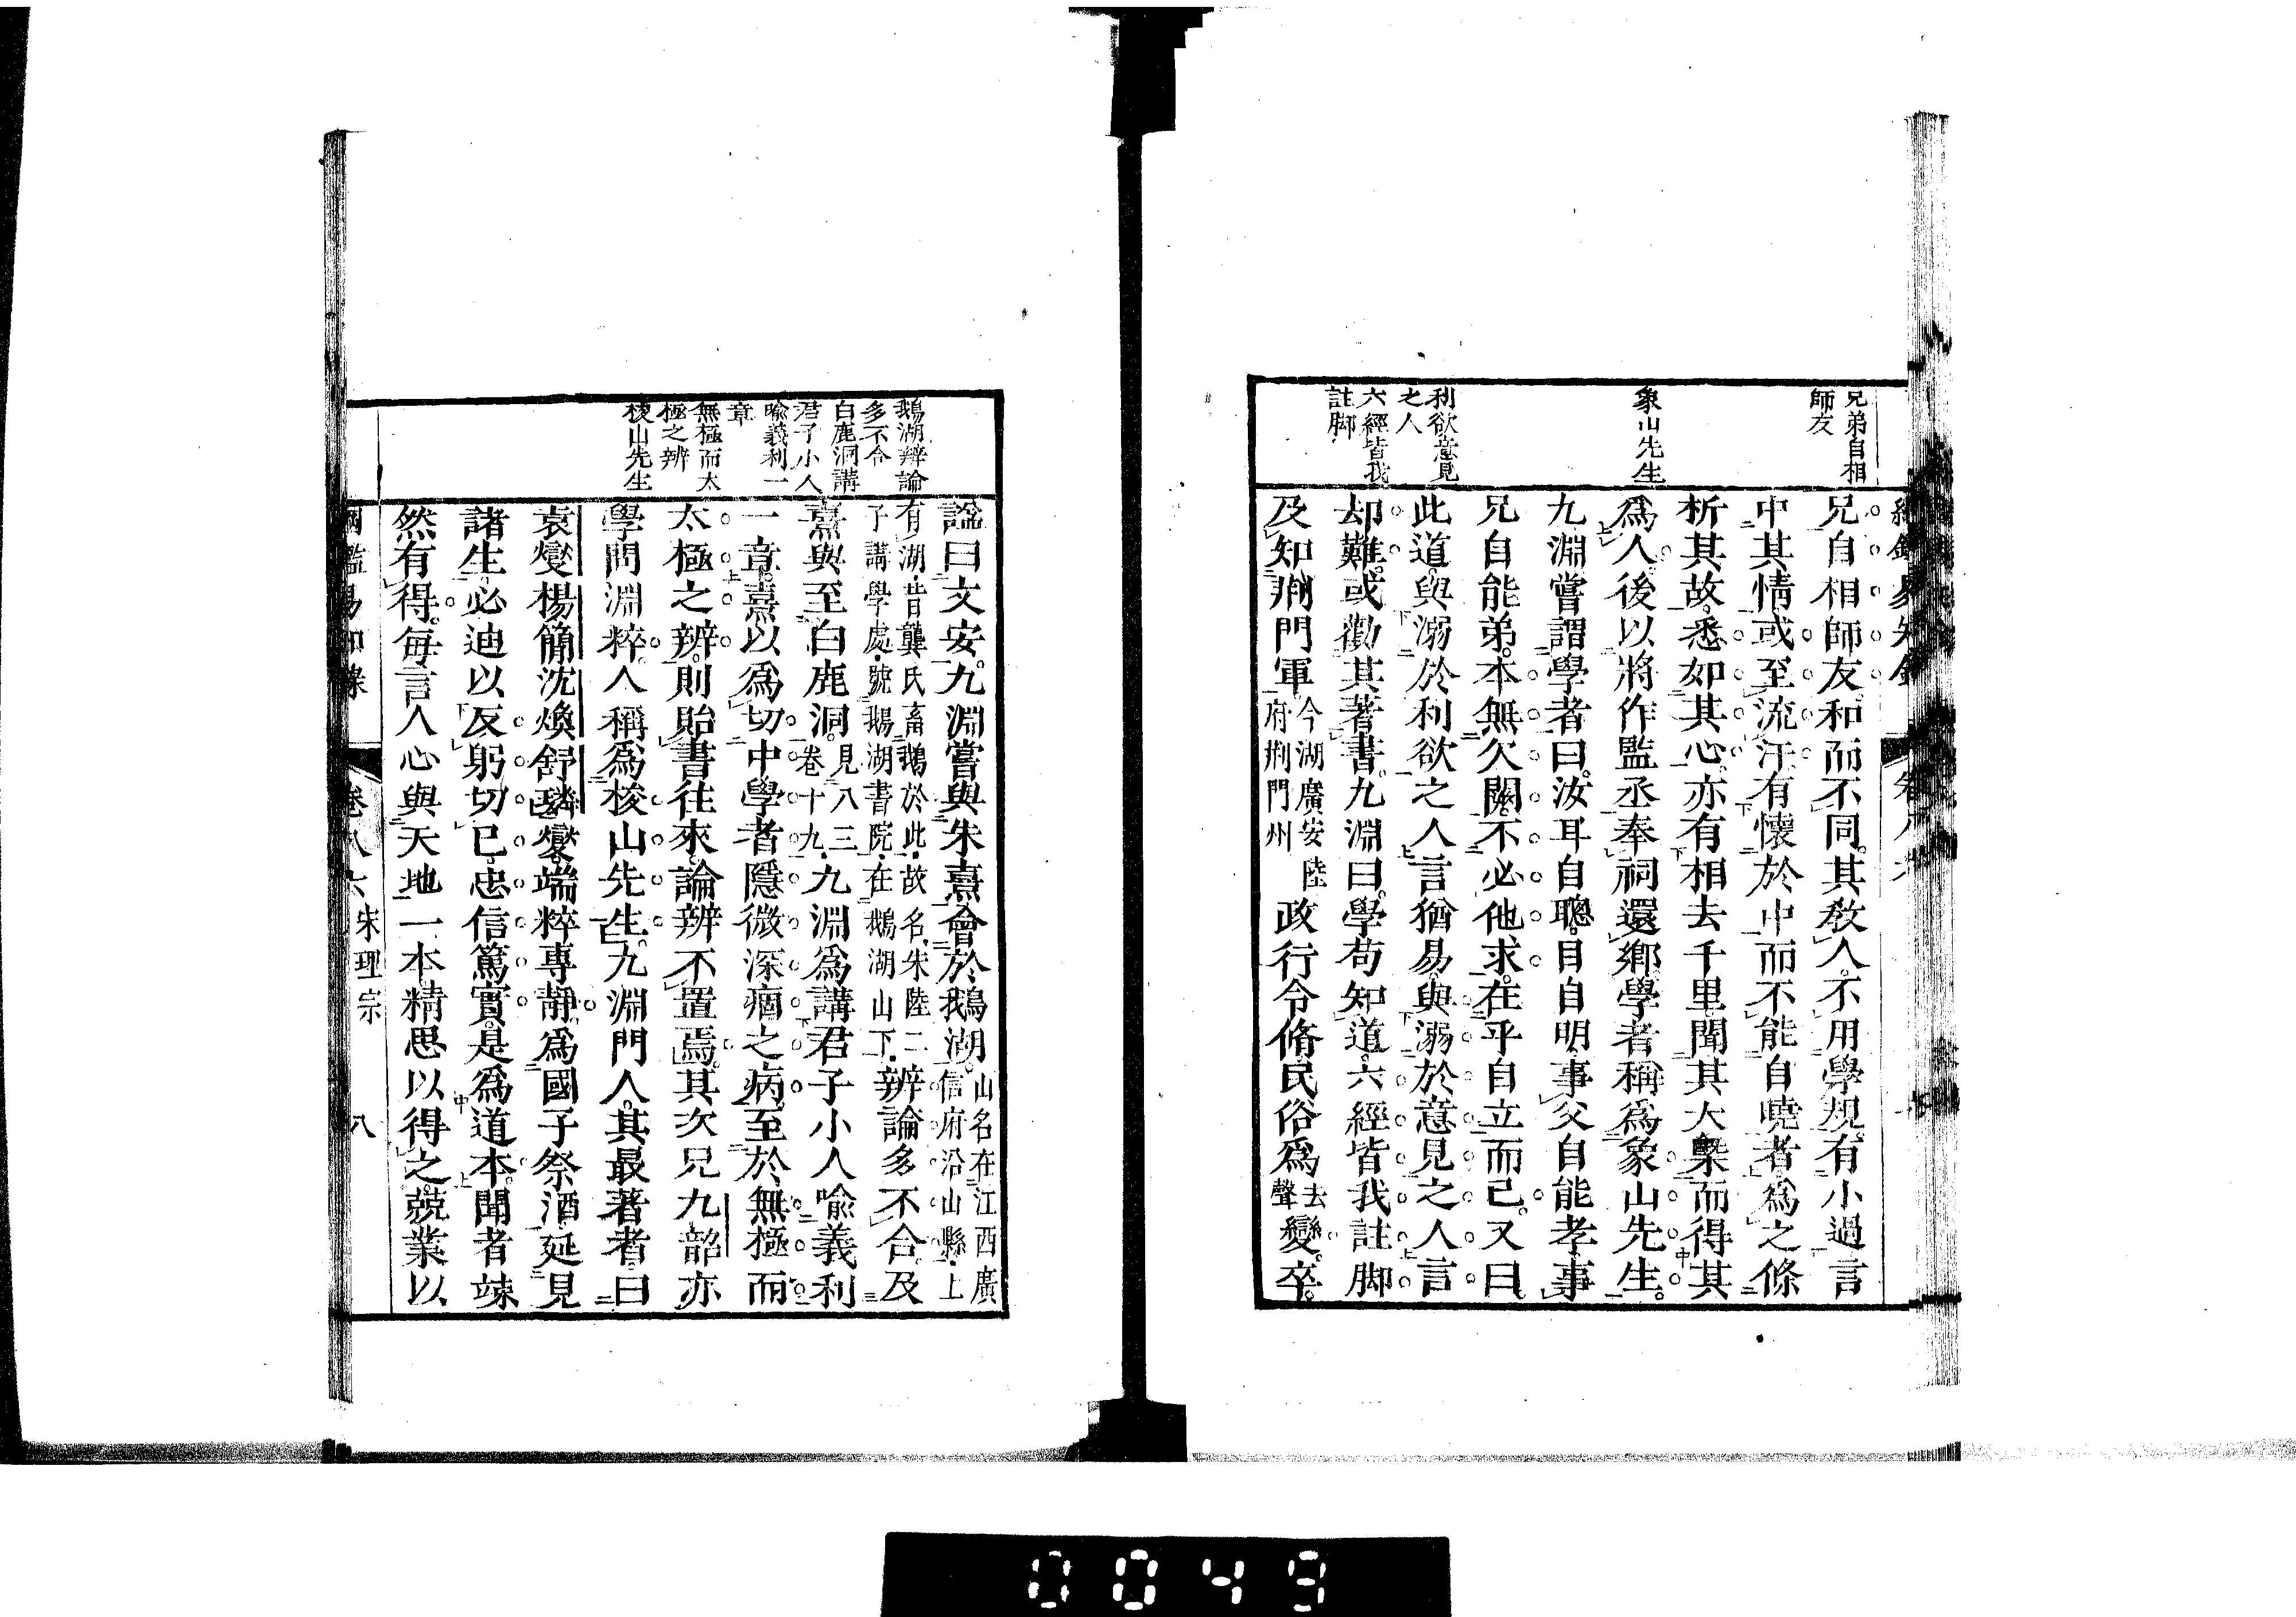 兄弟自相
師友
象山先生
利欲意見
之人
六經皆我
註脚
兄自相師友和而不同其敎人不用學規有小過言
中其情或至流汗有懷於中而不能自曉者爲之條
析其故悉如其心亦有相去千里聞其大槩而得其
爲人後以將作監丞奉祠還鄕學者稱爲象山先生
九淵嘗謂學者曰汝耳自聰目自明事父自能孝事
兄自能弟本無欠闕不必他求在乎自立而已又曰
此道與溺於利欲之人言猶易與溺於意見之人言
却難或勸其著書九淵曰學苟知道六經皆我註脚
及知荆門軍今湖廣安陸府荆門州政行令脩民俗爲去聲變卒
鵝湖辨論
多不合
白鹿洞講
君子小人
喻義利一
章
無極而太
極之辨
梭山先生
諡曰文安九淵嘗與朱熹會於鵝湖山名在江西廣信府沿山縣上
有湖昔龔氏畜鵝於此故名朱陸二子講學處號鵝湖書院在鵝湖山下辨論多不合及
熹與至白鹿洞見八三卷十九九淵爲講君子小人喻義利
一章熹以爲切中學者隱微深痼之病至於無極而
太極之辨則貽書往來論辨不置焉其次兄九韶亦
學問淵粹人稱爲梭山先生九淵門人其最著者曰
袁燮楊簡沈煥舒璘燮端粹專靜爲國子祭酒延見
諸生必迪以反躬切己忠信篤實是爲道本聞者竦
然有得每言人心與天地一本精思以得之兢業以
綱鑑易知錄 卷八六 宋理宗 八
0049